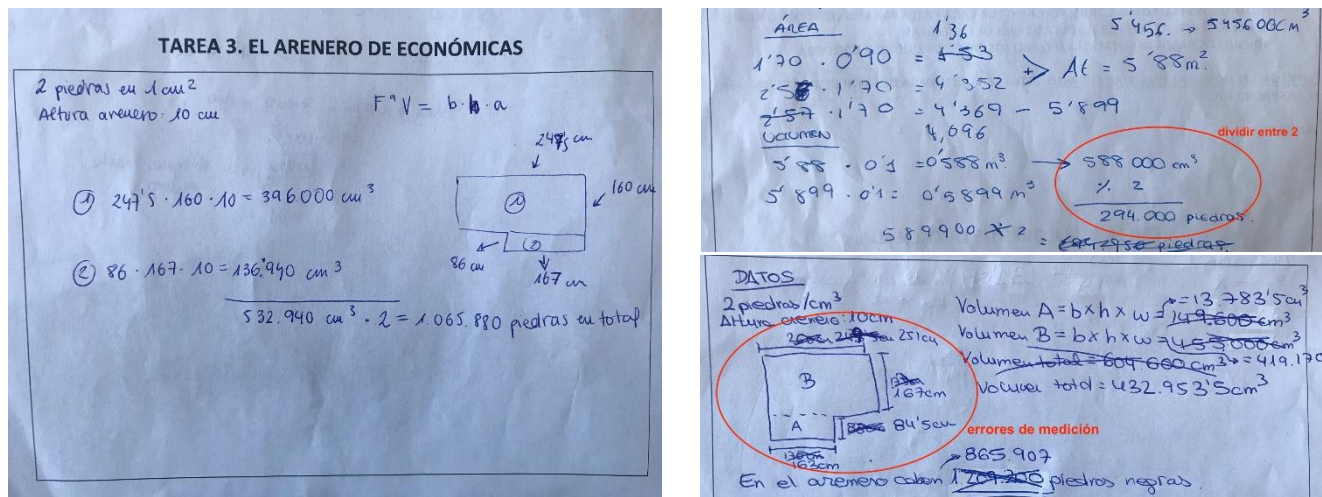 TAREA 3. EL ARENERO DE ECONÓMICAS
2 piedras en 1 cm²
Altura arenero: 10 cm
Fª V = b·h·a
247'5 cm
160 cm
①
②
86 cm
167 cm
① 247'5 · 160 · 10 = 396.000 cm³
② 86 · 167 · 10 = 136.940 cm³
532.940 cm³ · 2 = 1.065.880 piedras en total
ÁREA
1'36
5'456. → 545600cm³
1'70 · 0'90 = 1'53
2'56 · 1'70 = 4'352 + > At = 5'88m².
2'57 · 1'70 = 4'369 - 5'899
VOLUMEN
4,096
dividir entre 2
5'88 · 0'1 = 0'588 m³ → 588000 cm³
5'899 · 0'1 = 0'5899 m³
% 2
294.000 piedras.
589900 x 2 = piedras.
DATOS
2 piedras/cm³
Altura arenero: 10cm
251cm
B
167cm
A
84'5cm
163cm
errores de medición
Volumen A = b x h x w = 149.600 cm³ → = 13.783'5cm³
Volumen B = b x h x w = 455.000 cm³
Volumen total = 604.600 cm³ → = 419.170
Volumen total = 432.953'5cm³
→ 865.907
En el arenero caben 1.209.200 piedras negras.